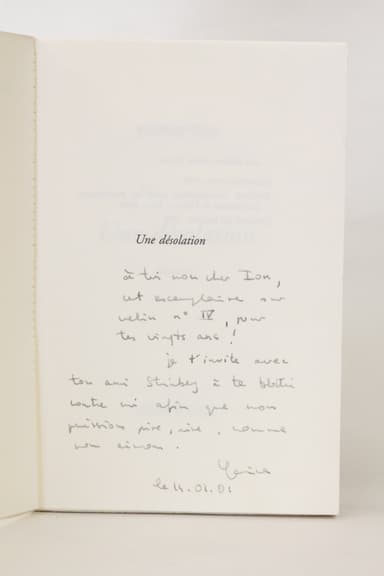 Une désolation
à toi mon cher Ion,
cet exemplaire sur
vélin n° IV, pour
tes vingts ans !
je t'invite avec
ton ami à te blottir
contre moi afin que nous
puissions rire, rire, comme
nous aimons.
le 14.01.01